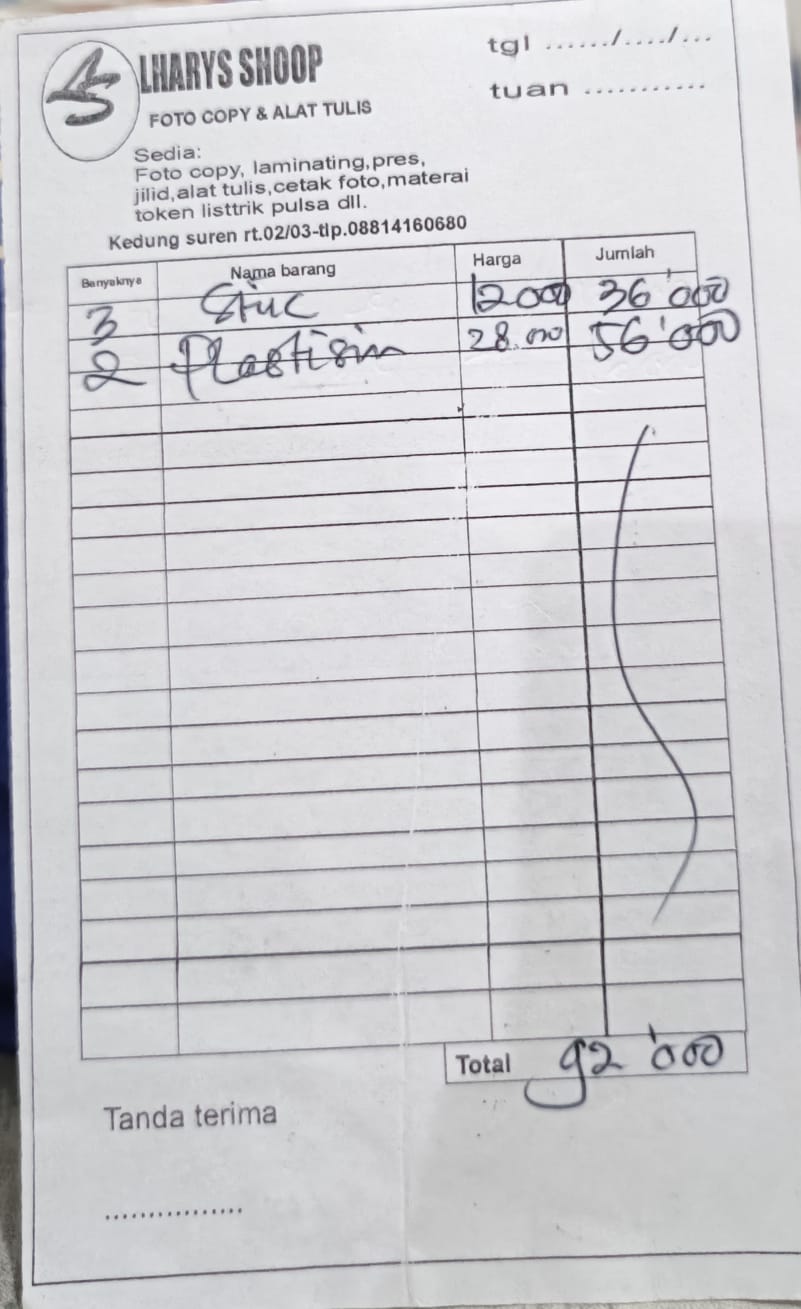 LHARYS SHOOP
FOTO COPY & ALAT TULIS
tgl ....../..../...
tuan ...........
Sedia:
Foto copy, laminating,pres,
jilid,alat tulis,cetak foto,materai
token listtrik pulsa dll.
Kedung suren rt.02/03-tlp.08814160680
Banyaknye Nama barang Harga Jumlah
3 Stic 12000 36'000
2 Plastisin 28.000 56'000
Total 92'000
Tanda terima
................